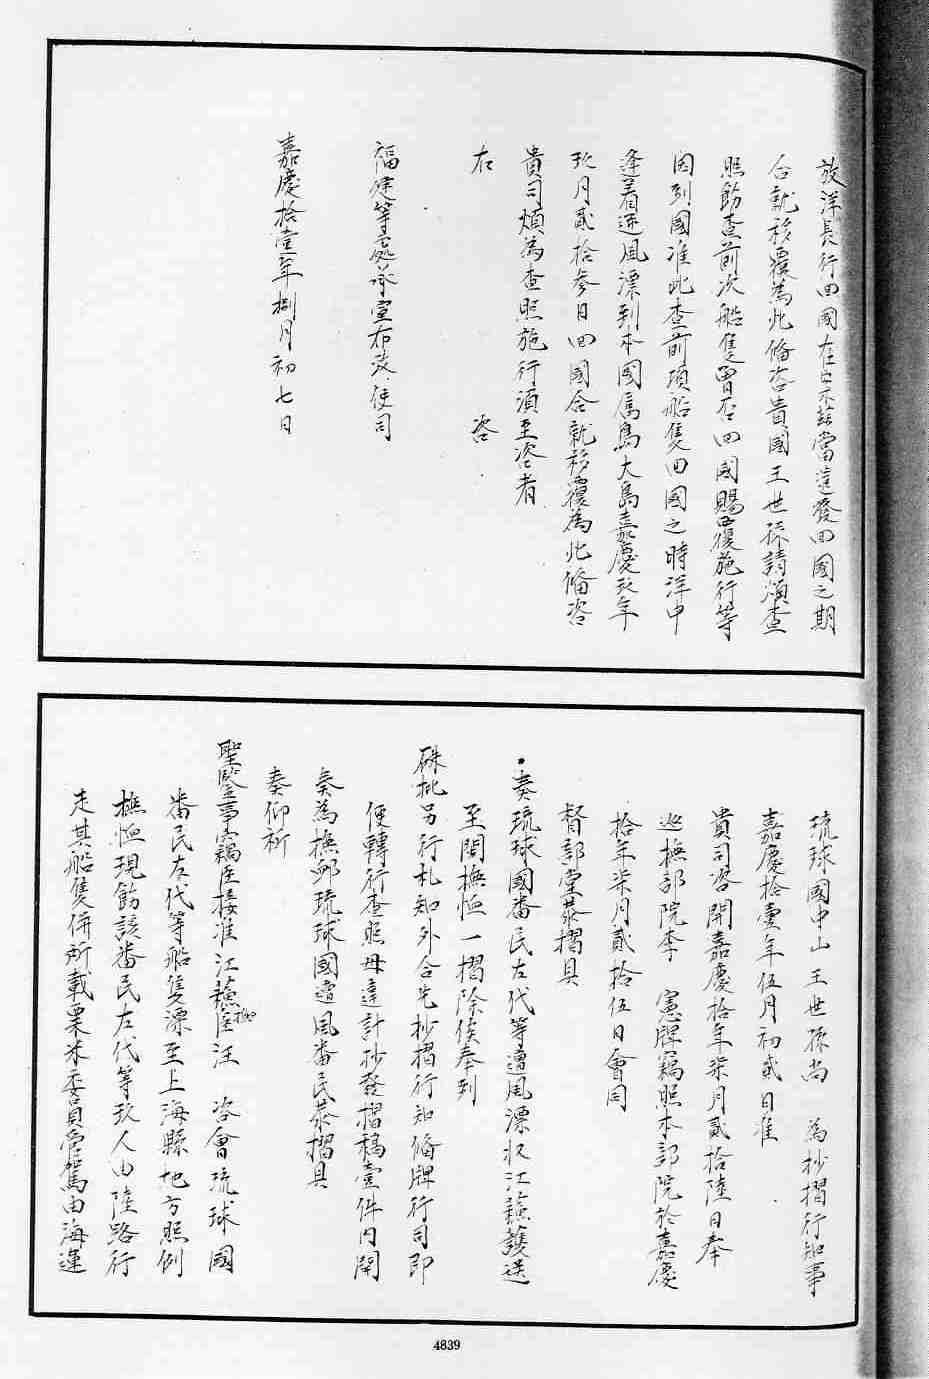 放洋長行回國在案茲當遣發回國之期
合就移覆為此備咨貴國王世孫請煩查
照飭查前次船隻曾否回國賜覆施行等
因到國准此查前項船隻回國之時洋中
逢着逆風漂到本國属島大島嘉慶玖年
玖月貳拾参日回國合就移覆為此備咨
貴司煩為查照施行須至咨者
右 咨
福建等處承宣布政使司
嘉慶拾壹年捌月初七日
琉球國中山王世孫尚 為抄摺行知事
嘉慶拾壹年伍月初貳日准
貴司咨開嘉慶拾年柒月貳拾陸日奉
巡撫部院李 憲牌竊照本部院於嘉慶
拾年柒月貳拾伍日會同
督部堂恭摺具
奏琉球國番民左代等遭風漂收江蘓護送
至閩撫恤一摺除俟奉到
硃批另行札知外合先抄摺行知備牌行司即
便轉行查照毋違計抄發摺稿壹件内開
奏為撫邺琉球國遭風番民恭摺具
奏仰祈
聖鑒事竊臣接准江蘓撫臣汪 咨會琉球國
番民左代等船隻漂至上海縣地方照例
撫恤現飭該番民左代等玖人由陸路行
走其船隻併所載粟米委員雇駕由海運
4839